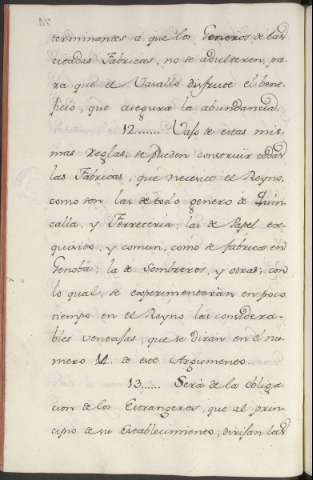 terminantes a que los Generos de las
citadas Fabricas, no se adulteren, pa
ra que el Vasallo disfrute el bene
ficio, que asegura la abundancia.
12...... Vajo de estas mis
mas reglas, se pueden construir todas
las Fabricas, que necesite el Reyno,
como son las de todo genero de Quin
calla, y Ferreteria; las de Papel ex
quisito, y comun, como se fabrica en
Genoba; la de Sombreros, y otras; con
lo qual, se experimentaràn en poco
tiempo en el Reyno las considera
bles ventajas, que se diràn en el nu
mero 14. de este Argumento.
13..... Serà de la obliga
cion de los Estrangeros, que al prin
cipio de su establecimiento, dirijan las